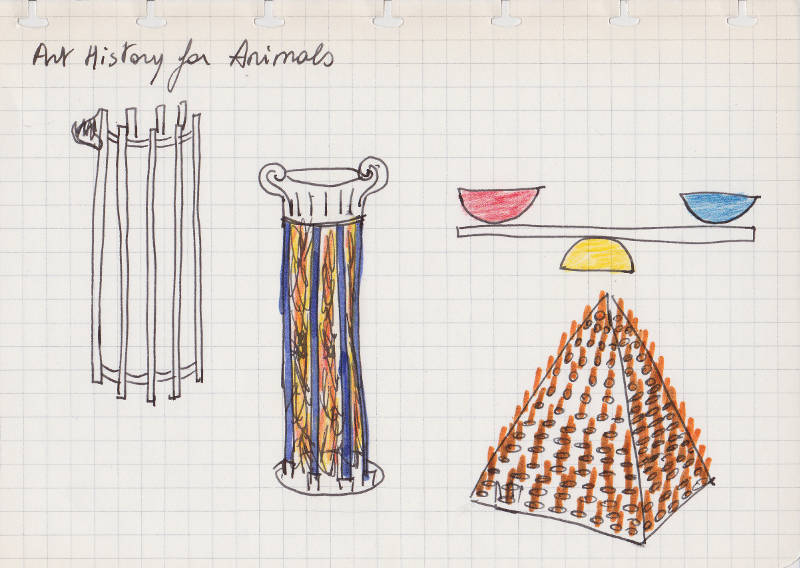 Art History for Animals